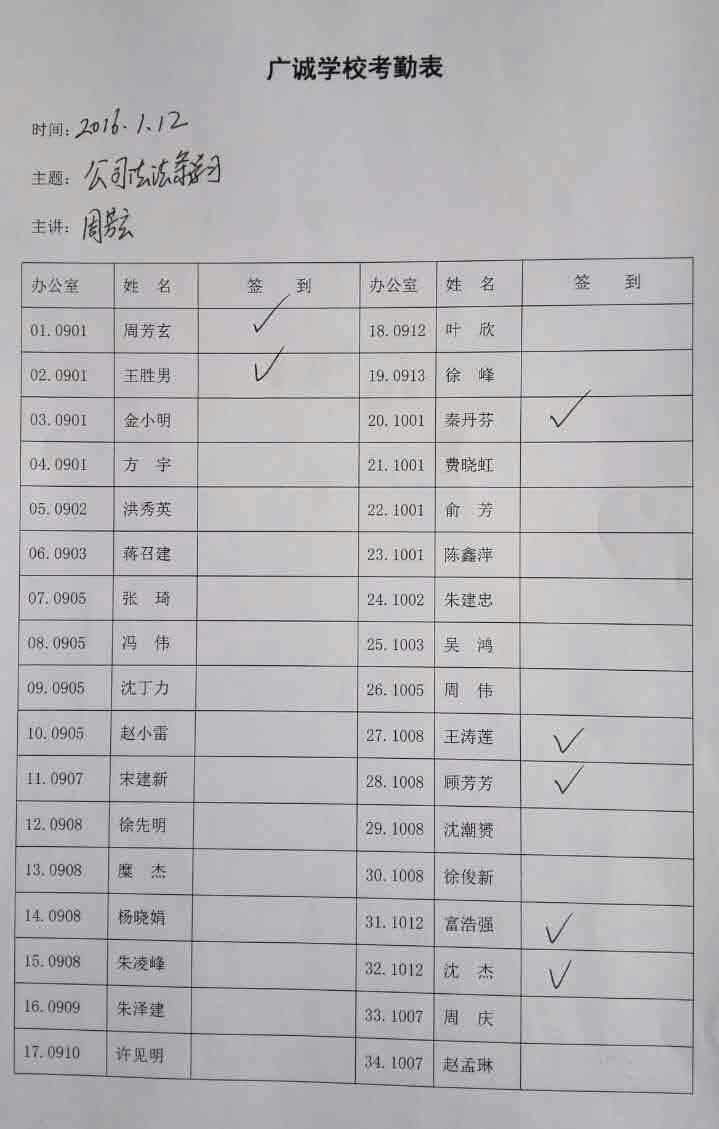 广诚学校考勤表
时间：2016.1.12
主题：公司法法条学习
主讲：周芳玄
办公室 姓 名 签 到 办公室 姓 名 签 到
01.0901 周芳玄 ✓ 18.0912 叶 欣
02.0901 王胜男 ✓ 19.0913 徐 峰
03.0901 金小明 20.1001 秦丹芬 ✓
04.0901 方 宇 21.1001 费晓虹
05.0902 洪秀英 22.1001 俞 芳
06.0903 蒋召建 23.1001 陈鑫萍
07.0905 张 琦 24.1002 朱建忠
08.0905 冯 伟 25.1003 吴 鸿
09.0905 沈丁力 26.1005 周 伟
10.0905 赵小雷 27.1008 王涛莲 ✓
11.0907 宋建新 28.1008 顾芳芳 ✓
12.0908 徐先明 29.1008 沈潮赟
13.0908 糜 杰 30.1008 徐俊新
14.0908 杨晓娟 31.1012 富浩强 ✓
15.0908 朱凌峰 32.1012 沈 杰 ✓
16.0909 朱泽建 33.1007 周 庆
17.0910 许见明 34.1007 赵孟琳